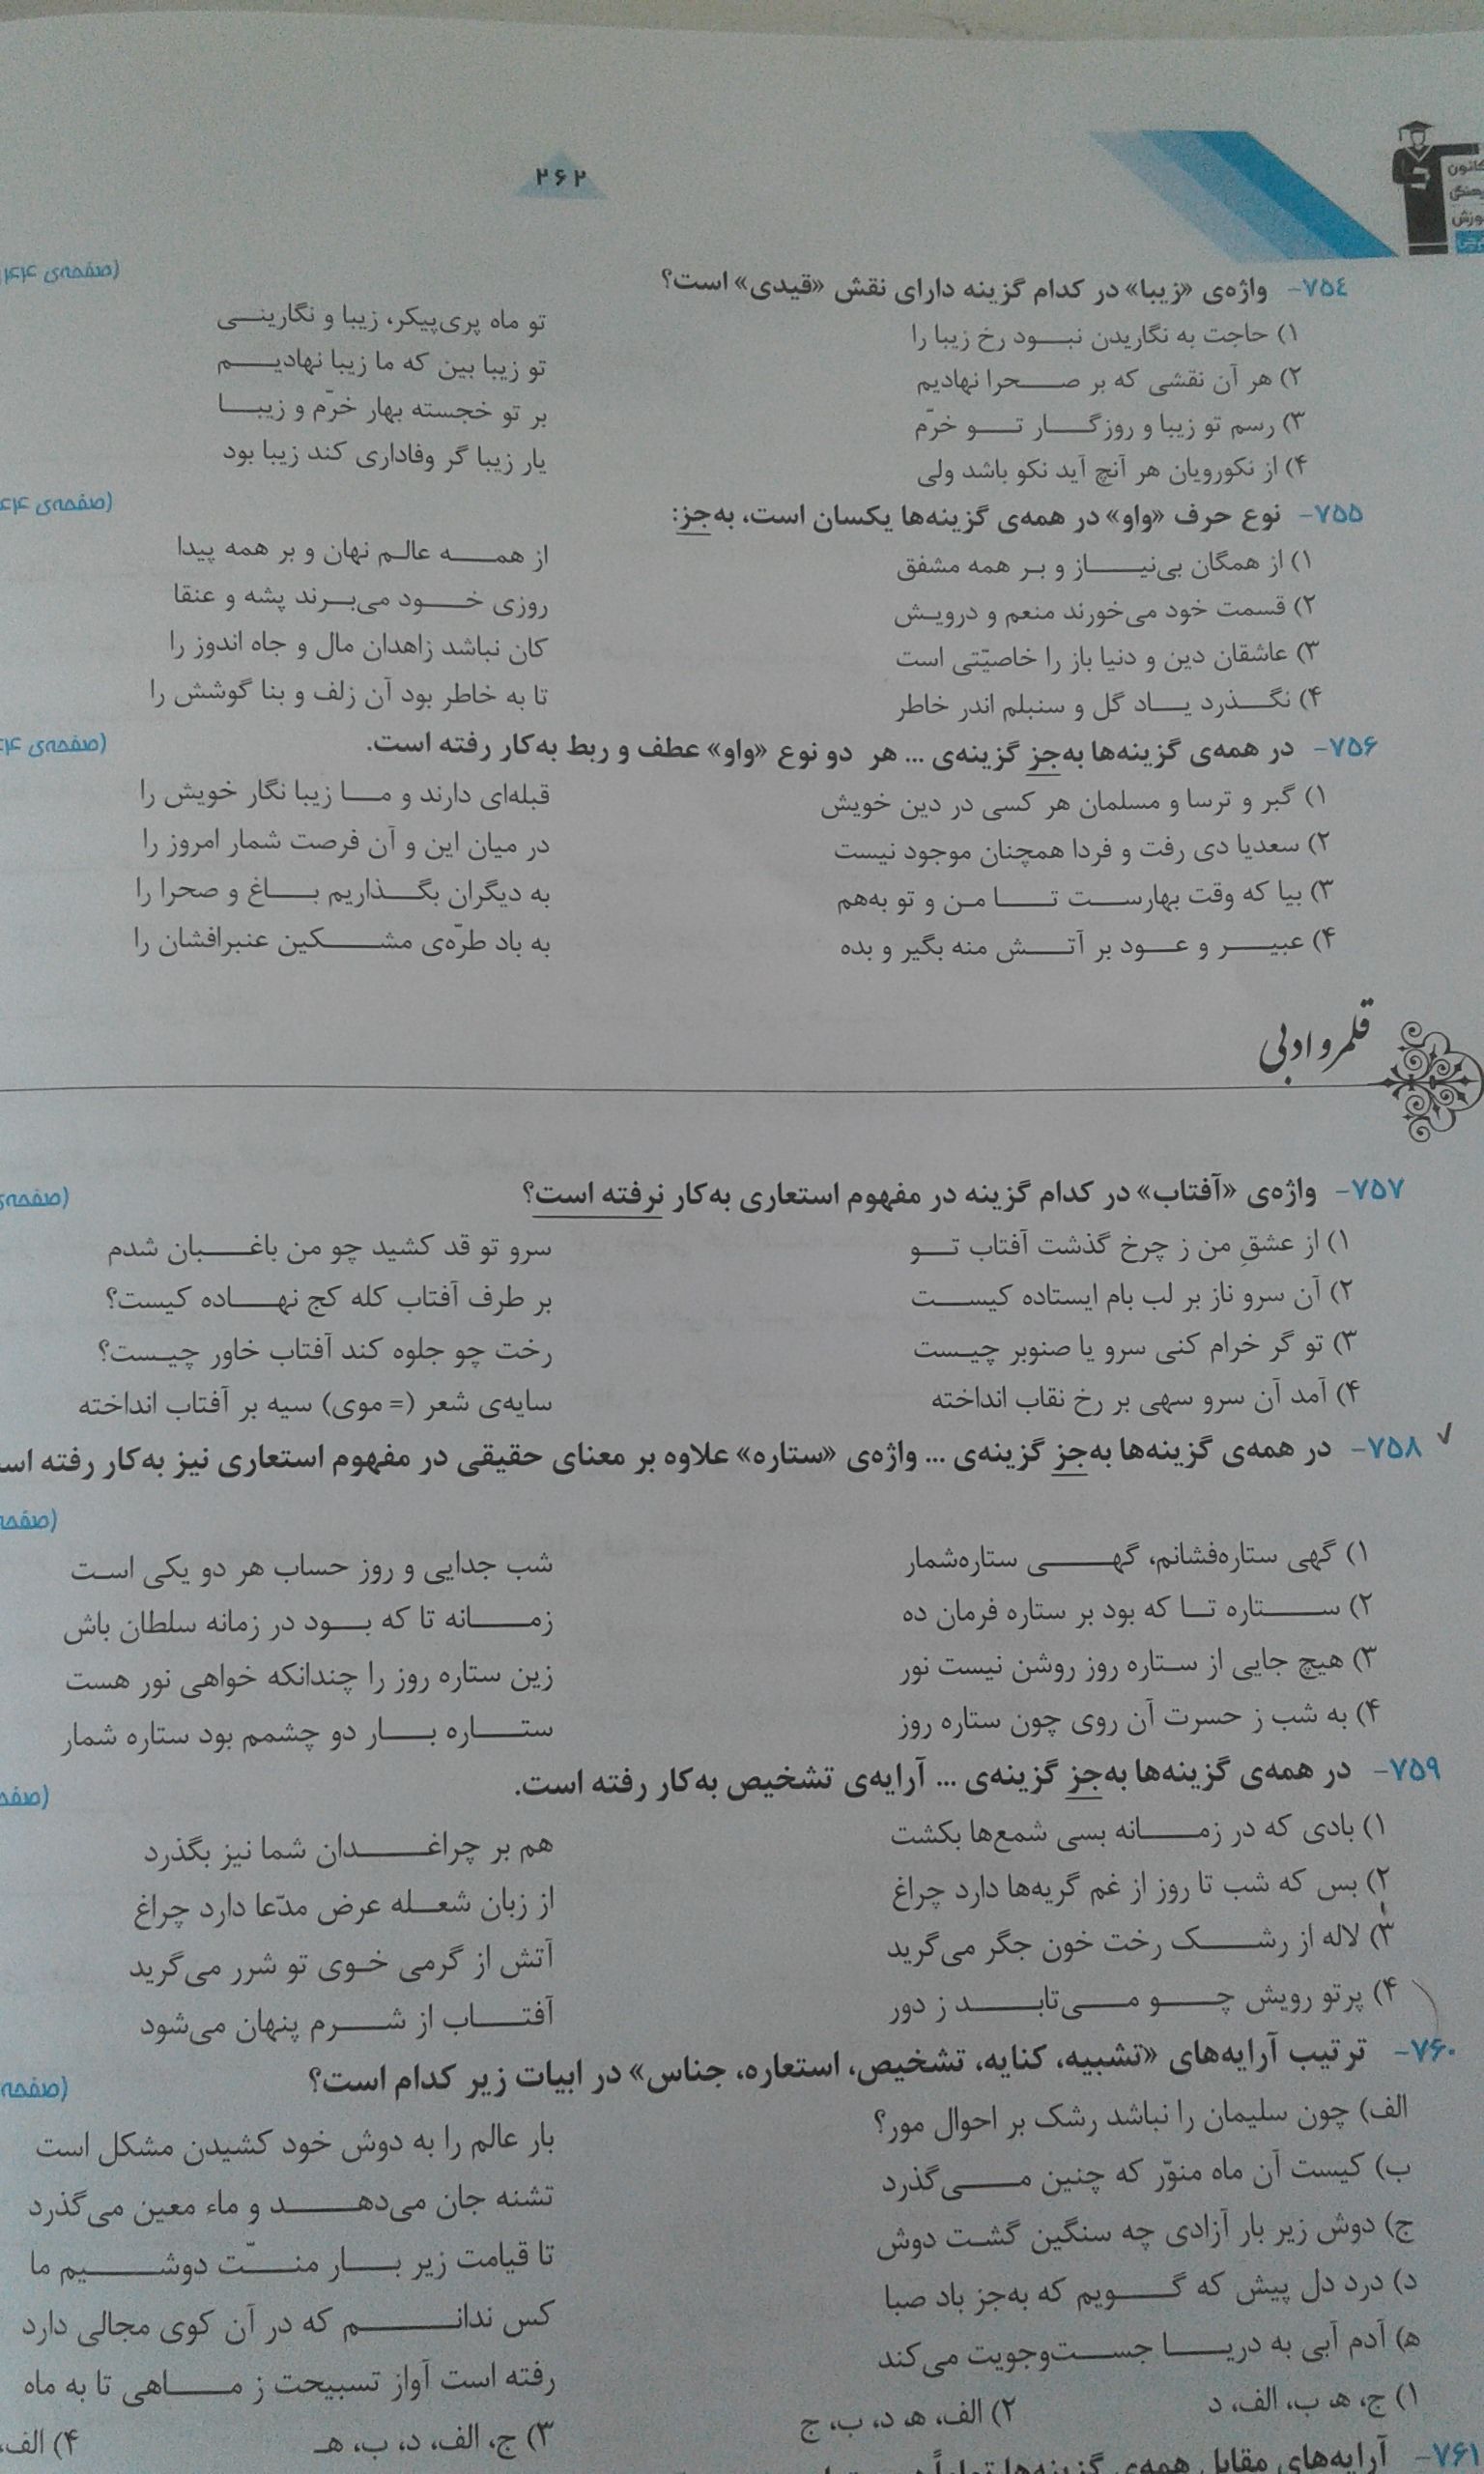 کانون
فرهنگی
آموزش
۲۶۲
۷۵۴- واژه‌ی «زیبا» در کدام گزینه دارای نقش «قیدی» است؟ (صفحه‌ی ۴۴
۱) حاجت به نگاریدن نبـــود رخ زیبا را تو ماه پری‌پیکر، زیبا و نگارینــی
۲) هر آن نقشی که بر صـــحرا نهادیم تو زیبا بین که ما زیبا نهادیـــم
۳) رسم تو زیبا و روزگــــار تــــو خرّم بر تو خجسته بهار خرّم و زیبـــا
۴) از نکورویان هر آنچ آید نکو باشد ولی یار زیبا گر وفاداری کند زیبا بود
۷۵۵- نوع حرف «واو» در همه‌ی گزینه‌ها یکسان است، به‌جز: (صفحه‌ی ۴۴
۱) از همگان بی‌نیـــــاز و بـر همه مشفق از همـــــه عالـم نهان و بر همه پیدا
۲) قسمت خود می‌خورند منعم و درویـش روزی خـــود می‌بـرند پشه و عنقا
۳) عاشقان دین و دنیا باز را خاصیّتی است کان نباشد زاهدان مال و جاه اندوز را
۴) نگـــذرد یـــاد گل و سنبلم اندر خاطر تا به خاطر بود آن زلف و بنا گوشش را
۷۵۶- در همه‌ی گزینه‌ها به‌جز گزینه‌ی ... هر دو نوع «واو» عطف و ربط به‌کار رفته است. (صفحه‌ی ۴۴
۱) گبر و ترسا و مسلمان هر کسی در دین خویش قبله‌ای دارند و مـــا زیبا نگار خویش را
۲) سعدیا دی رفت و فردا همچنان موجود نیست در میان این و آن فرصت شمار امروز را
۳) بیا که وقت بهارســـت تــــا مـن و تو به‌هم به دیگران بگـــذاریم بـــاغ و صحرا را
۴) عبیـــــر و عـــود بر آتـــش منه بگیر و بده به باد طرّه‌ی مشـــــکین عنبرافشان را
قلمرو ادبی
۷۵۷- واژه‌ی «آفتاب» در کدام گزینه در مفهوم استعاری به‌کار نرفته است؟ (صفحه‌ی
۱) از عشقِ من ز چرخ گذشت آفتاب تـــو سرو تو قد کشید چو من باغـــبان شدم
۲) آن سرو ناز بر لب بام ایستاده کیســـت بر طرف آفتاب کله کج نهـــاده کیست؟
۳) تو گر خرام کنی سرو یا صنوبر چیـست رخت چو جلوه کند آفتاب خاور چیـست؟
۴) آمد آن سرو سهی بر رخ نقاب انداخته سایه‌ی شعر (= موی) سیه بر آفتاب انداخته
۷۵۸- در همه‌ی گزینه‌ها به‌جز گزینه‌ی ... واژه‌ی «ستاره» علاوه بر معنای حقیقی در مفهوم استعاری نیز به‌کار رفته اس
(صفحه
۱) گهی ستاره‌فشانم، گهـــــی ستاره‌شمار شب جدایی و روز حساب هر دو یکی اسـت
۲) ســـــتاره تـــا که بود بر ستاره فرمان ده زمـــــانه تا که بـــود در زمانه سلطان باش
۳) هیچ جایی از ستاره روز روشن نیست نور زین ستاره روز را چندانکه خواهی نور هست
۴) به شب ز حسرت آن روی چون ستاره روز ستـــاره بـــار دو چشمم بود ستاره شمار
۷۵۹- در همه‌ی گزینه‌ها به‌جز گزینه‌ی ... آرایه‌ی تشخیص به‌کار رفته است. (صفحه
۱) بادی که در زمـــــانه بسی شمع‌ها بکشت هم بر چراغـــــدان شما نیز بگذرد
۲) بس که شب تا روز از غم گریه‌ها دارد چراغ از زبان شعـــله عرض مدّعا دارد چراغ
۳) لاله از رشـــــک رخت خون جگر می‌گرید آتش از گرمی خـوی تو شرر می‌گرید
۴) پرتو رویش چـــو مـــی‌تابـــــد ز دور آفتـــاب از شـــرم پنهان می‌شود
۷۶۰- ترتیب آرایه‌های «تشبیه، کنایه، تشخیص، استعاره، جناس» در ابیات زیر کدام است؟ (صفحه
الف) چون سلیمان را نباشد رشک بر احوال مور؟ بار عالم را به دوش خود کشیدن مشکل است
ب) کیست آن ماه منوّر که چنین مـــــی‌گذرد تشنه جان می‌دهـــــد و ماء معین می‌گذرد
ج) دوش زیر بار آزادی چه سنگین گشت دوش تا قیامت زیر بـــار منـــّت دوشـــــیم ما
د) درد دل پیش که گـــــویم که به‌جز باد صبا کس ندانـــــم که در آن کوی مجالی دارد
ه) آدم آبی به دریـــــا جســـت‌وجویت می‌کند رفته است آواز تسبیحت ز مـــــاهی تا به ماه
۱) ج، ه، ب، الف، د ۲) الف، ه، د، ب، ج ۳) ج، الف، د، ب، هـ ۴) الف،
۷۶۱- آرایه‌های مقابل همه‌ی گزینه‌ها تماماً